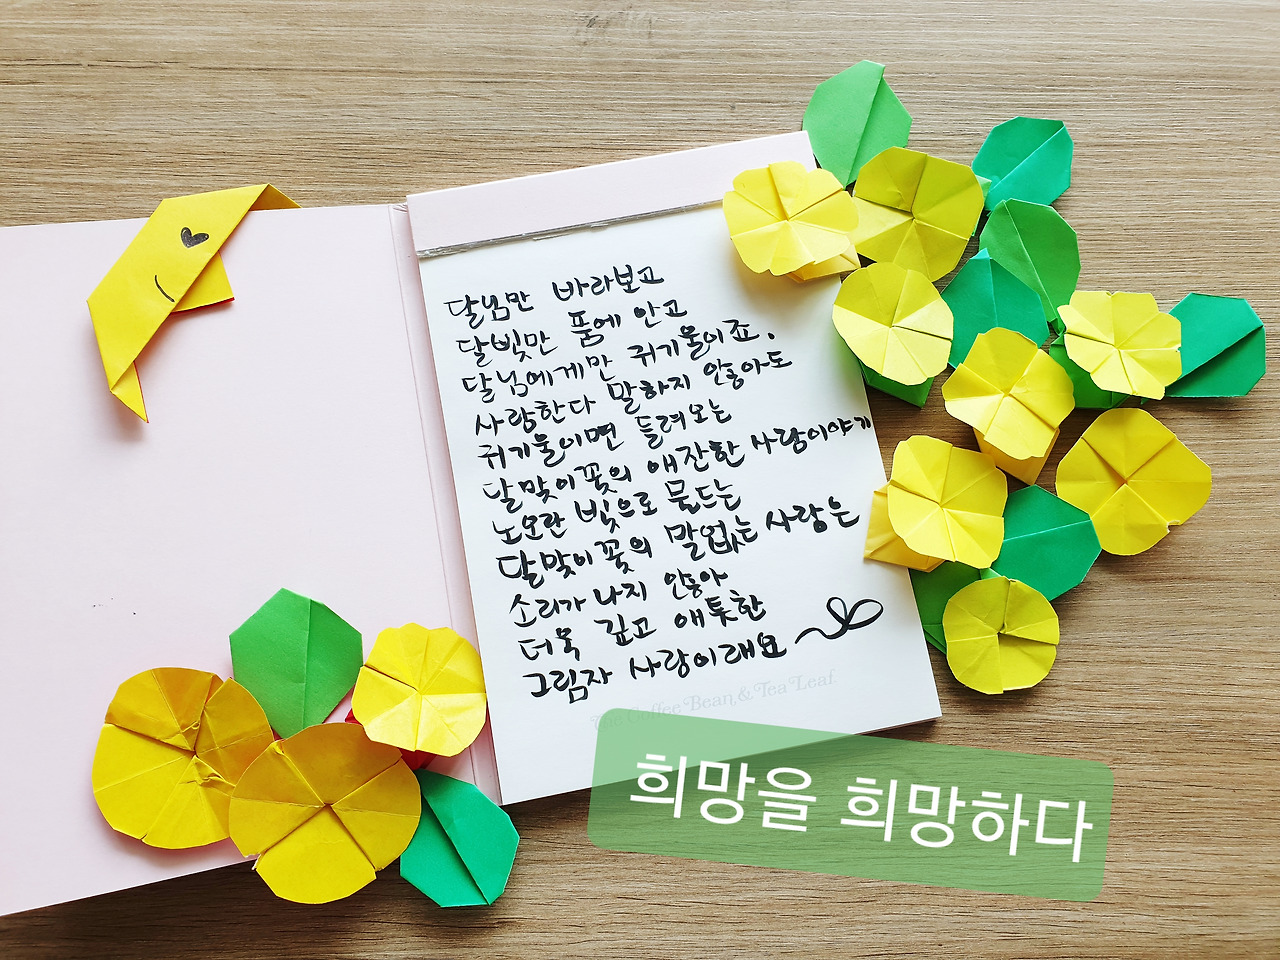 달님만 바라보고
달빛만 품에 안고
달님에게만 귀기울이죠.
사랑한다 말하지 않아도
귀기울이면 들려오는
달맞이꽃의 애잔한 사랑이야기
노오란 빛으로 물드는
달맞이꽃의 말없는 사랑은
소리가 나지 않아
더욱 깊고 애틋한
그림자 사랑이래요
The Coffee Bean & Tea Leaf
희망을 희망하다